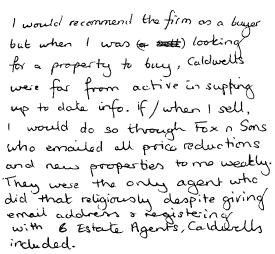 I would recommend the firm as a buyer
but when I was (a) looking
for a property to buy, Caldwells
were far from active in suppling
up to date info. If / when I sell,
I would do so through Fox n Sons
who emailed all price reductions
and new properties to me weekly.
They were the only agent who
did that religiously despite giving
email address & registering
with 6 Estate Agents, Caldwells
included.